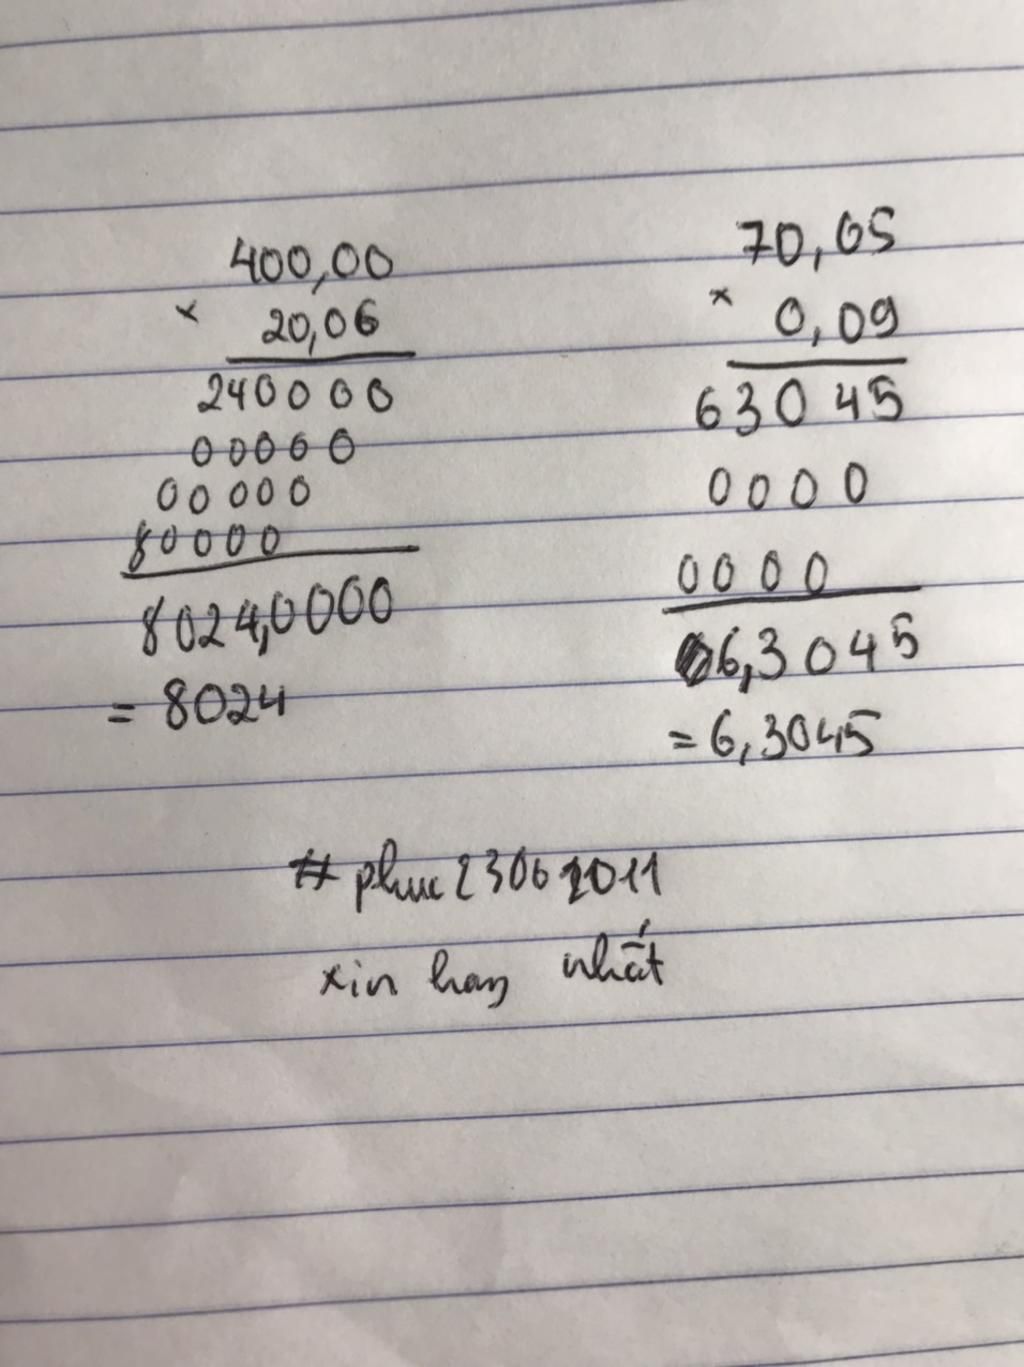 400,00
× 20,06
240000
00000
00000
80000
8024,0000
= 8024
70,05
× 0,09
63045
0000
0000
6,3045
= 6,3045
# phuc23062011
xin hay nhất